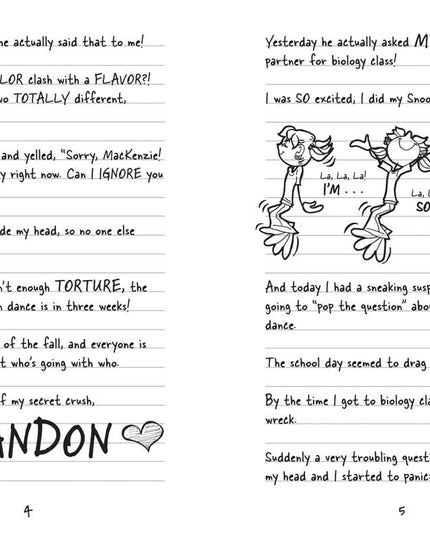 he actually said that to me!
clash with a FLAVOR?!
TOTALLY different,
and yelled, “Sorry, MacKenzie!
right now. Can I IGNORE you
my head, so no one else
enough TORTURE, the
dance is in three weeks!
of the fall, and everyone is
who’s going with who.
of my secret crush,
4
Yesterday he actually asked
partner for biology class!
I was SO excited, I did my
La, La, La!
I’M . . .
La,
SO
And today I had a sneaking
going to “pop the question”
dance.
The school day seemed to drag
By the time I got to biology
wreck.
Suddenly a very troubling
my head and I started to panic
5